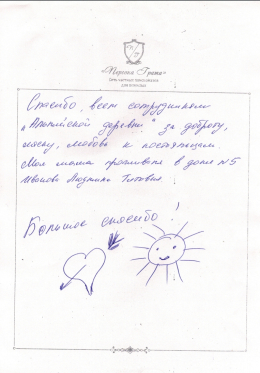 «Персона Грата»
Сеть частных пансионатов
для пожилых
Спасибо, всем сотрудникам
"Альпийской деревни" за доброту,
ласку, любовь к постояльцам
Моя мама проживала в доме №5
Иванова Людмила
Большое спасибо!